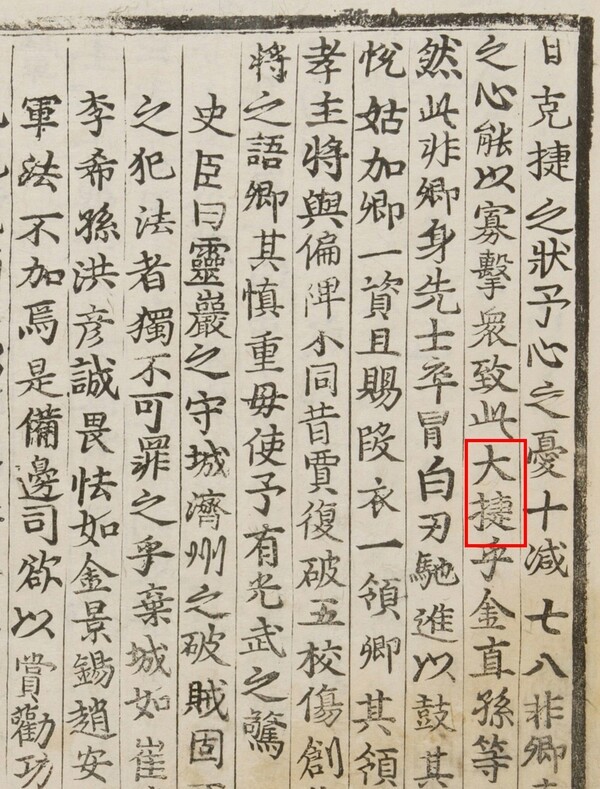 日克捷之狀予心之憂十减七八非卿
之心能以寡擊衆致此大捷乎金直孫等
然此非卿身先士卒冒白刃馳進以鼓其
悅姑加卿一資且賜段衣一領卿其領
孝主將與偏裨不同昔賈復破五校傷創
將之語卿其慎重毋使予有光武之驚
史臣曰靈巖之守城濟州之破賊固
之犯法者獨不可罪之乎棄城如崔
李希孫洪彦誠畏怯如金景錫趙安
軍法不加焉是備邊司欲以賞勸功